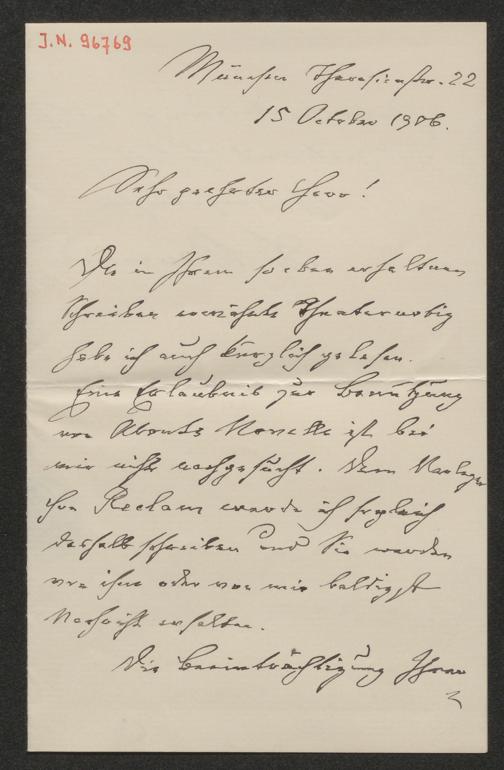 J.N. 96769
München Theresienstr. 22
15 October 1906.
Sehr geehrter Herr!
Die in Ihrem soeben erhaltenen
Schreiben erwähnte Theaternotiz
habe ich auch kürzlich gelesen.
Eine Erlaubnis zur Benützung
von Abouts Novelle ist bei
mir nicht nachgesucht. Dem Verleger
Reclam werde ich sogleich
deshalb schreiben und Sie werden
von ihm oder von mir baldigst
Nachricht erhalten.
Die Beeinträchtigung Ihrer